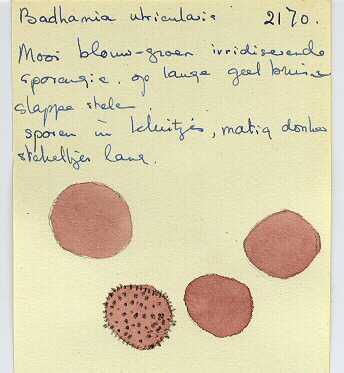 Badhamia utricularis 2170.
Mooi blauw-groen irridiserende
sporangie. op lange geel bruine
slappe stelen.
sporen in kluitjes, matig donker
stekeltjes lang.